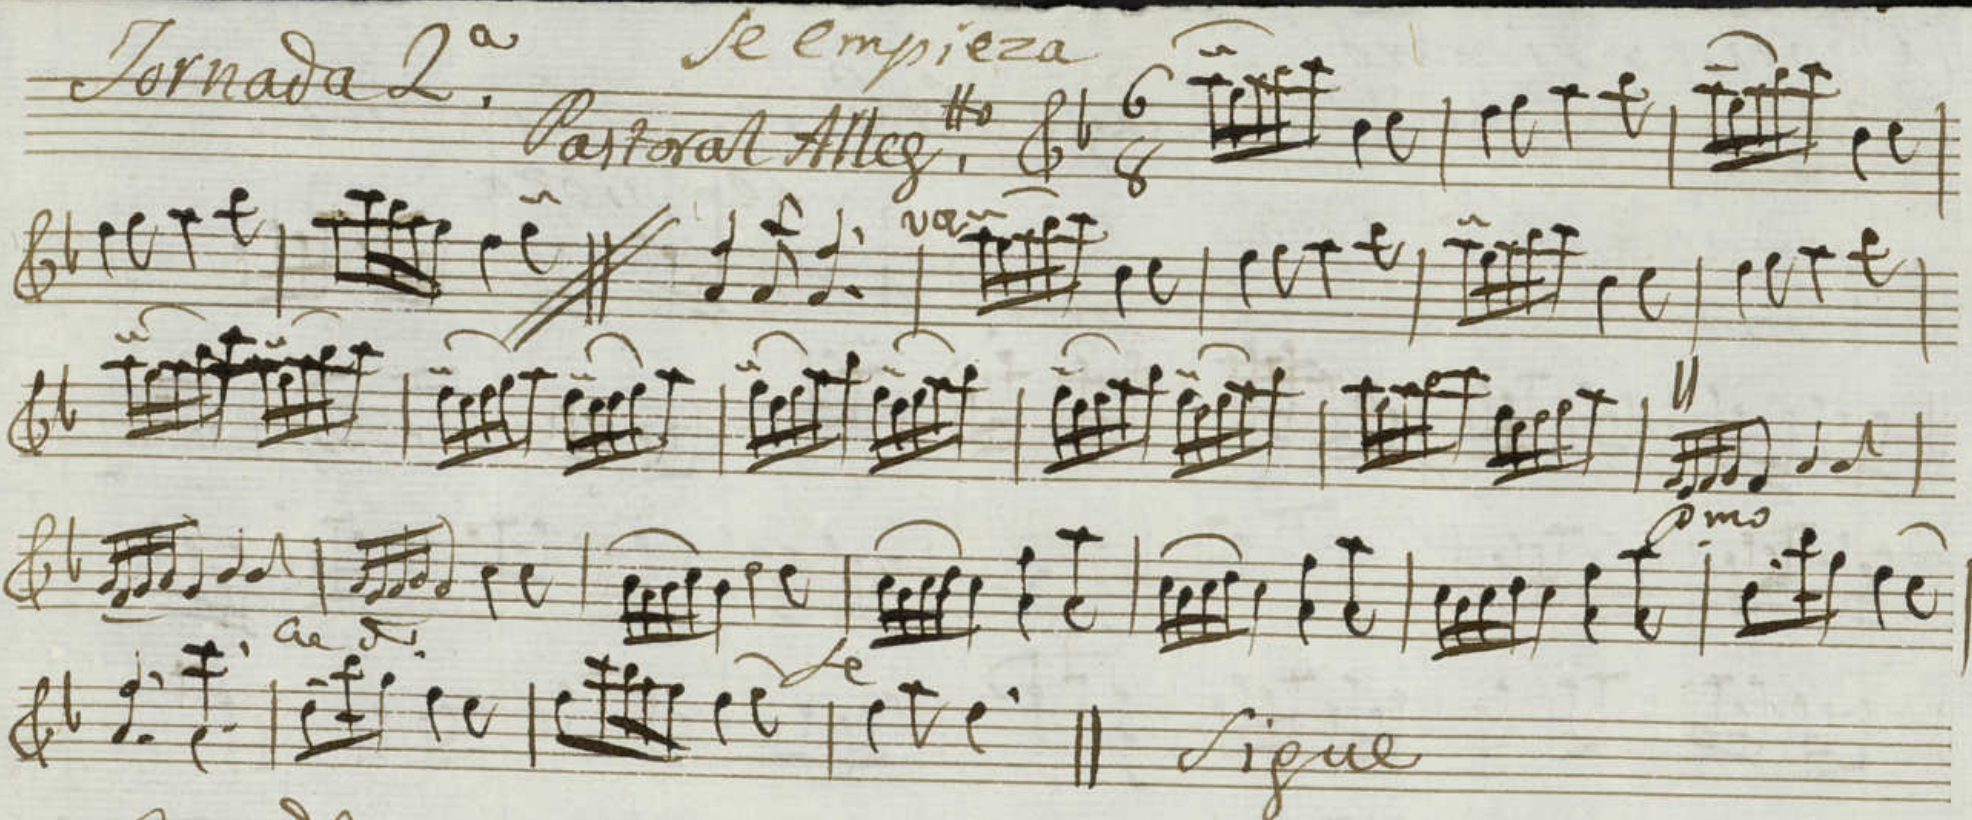 Jornada 2.ª Se empieza
Pastoral Alleg.tto 6 8
va
pmo
fe
Sigue